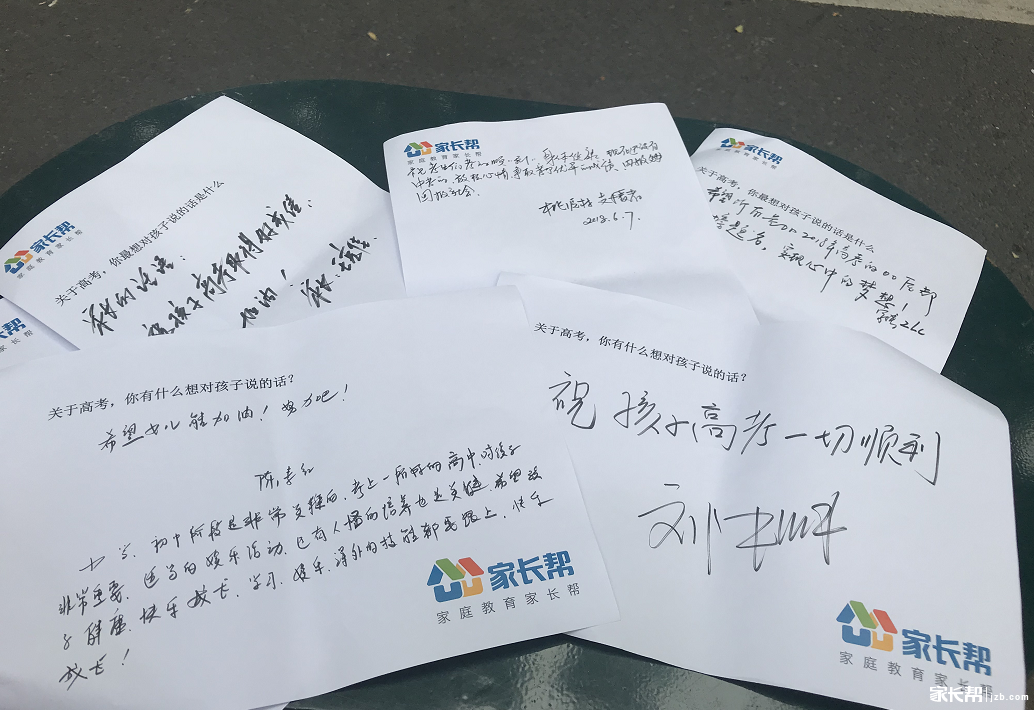 家长帮
家庭教育家长帮
关于高考，你最想对孩子说的话是什么
家长的话语：
孩子高考取得好成绩！
加油！
家长帮
家庭教育家长帮
祝考生们考的顺利
回报社会。
2018.6.7.
家长帮
关于高考，你最想对孩子说的话是什么
希望所有参加2018年高考的00后都
题名，实现心中的梦想！
家长帮
关于高考，你有什么想对孩子说的话？
希望女儿能加油！努力吧！
小学、初中阶段是非常关键的，考上一所好的高中，对孩子
非常重要，适当的娱乐活动，已有人情的培养也是关键，希望孩
子健康、快乐成长，学习、娱乐、课外的技能都要跟上，快乐
成长！
家长帮
家庭教育家长帮
关于高考，你有什么想对孩子说的话？
祝孩子高考一切顺利
家长帮
家庭教育家长帮
家长帮 jzb.com